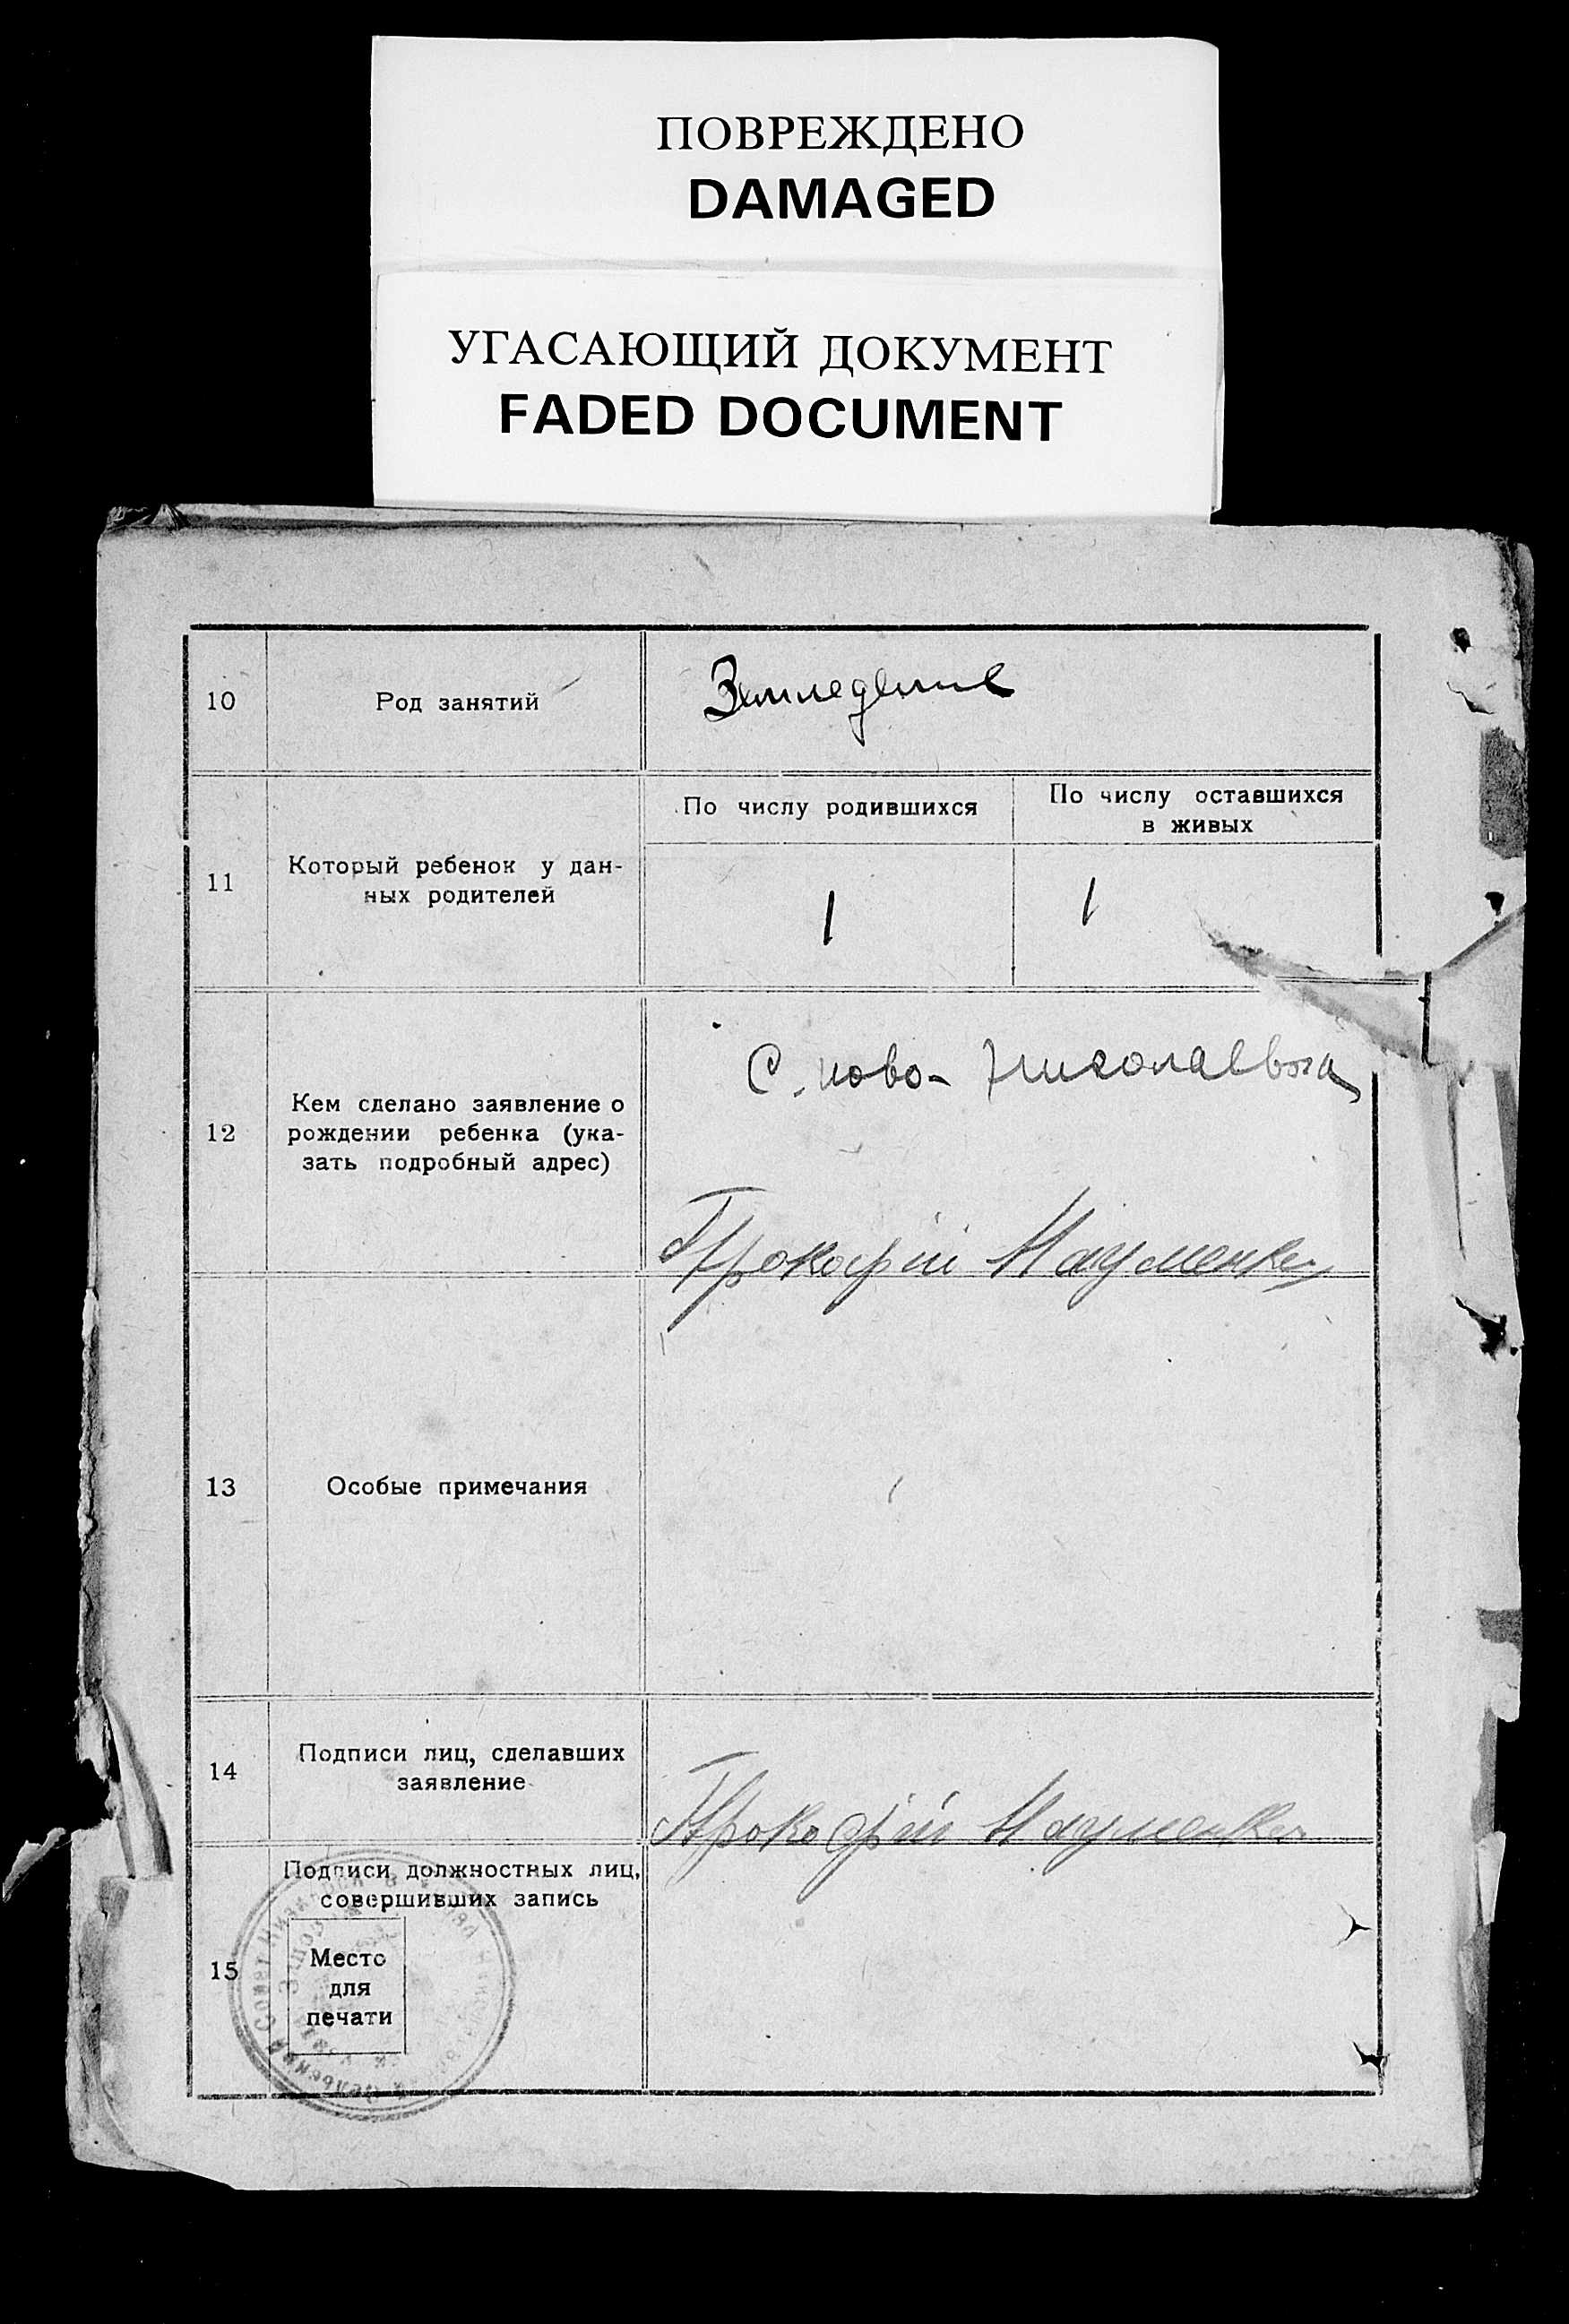 ПОВРЕЖДЕНО
DAMAGED
УГАСАЮЩИЙ ДОКУМЕНТ
FADED DOCUMENT
10
Род занятий
Земледелие
11
Который ребенок у дан-
ных родителей
По числу родившихся
По числу оставшихся
в живых
1
1
12
Кем сделано заявление о
рождении ребенка (ука-
зать подробный адрес)
С. ново-Николаевка
Прокофій Науменко
13
Особые примечания
14
Подписи лиц, сделавших
заявление
Прокофій Науменко
15
Подписи должностных лиц,
совершивших запись
Место
для
печати